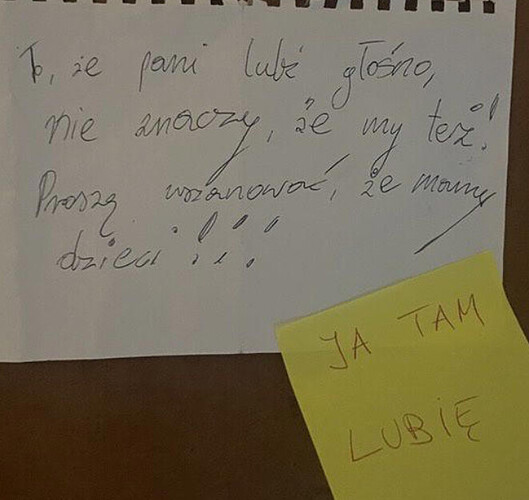 To, że pani lubi głośno,
nie znaczy, że my też!
Proszę uszanować, że mamy
dzieci!!!
JA TAM
LUBIĘ